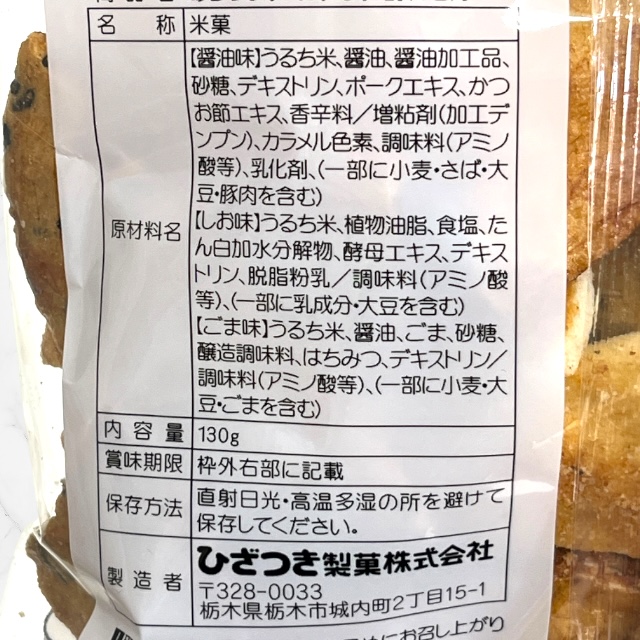 名称 米菓
原材料名
【醤油味】うるち米、醤油、醤油加工品、
砂糖、デキストリン、ポークエキス、かつ
お節エキス、香辛料／増粘剤(加工デ
ンプン)、カラメル色素、調味料(アミノ
酸等)、乳化剤、(一部に小麦・さば・大
豆・豚肉を含む)
【しお味】うるち米、植物油脂、食塩、たん
白加水分解物、酵母エキス、デキス
トリン、脱脂粉乳／調味料(アミノ酸
等)、(一部に乳成分・大豆を含む)
【ごま味】うるち米、醤油、ごま、砂糖、
醸造調味料、はちみつ、デキストリン／
調味料(アミノ酸等)、(一部に小麦・大
豆・ごまを含む)
内容量 130g
賞味期限 枠外右部に記載
保存方法 直射日光・高温多湿の所を避けて
保存してください。
製造者 ひざつき製菓株式会社
〒328-0033
栃木県栃木市城内町2丁目15-1
にお召し上がり